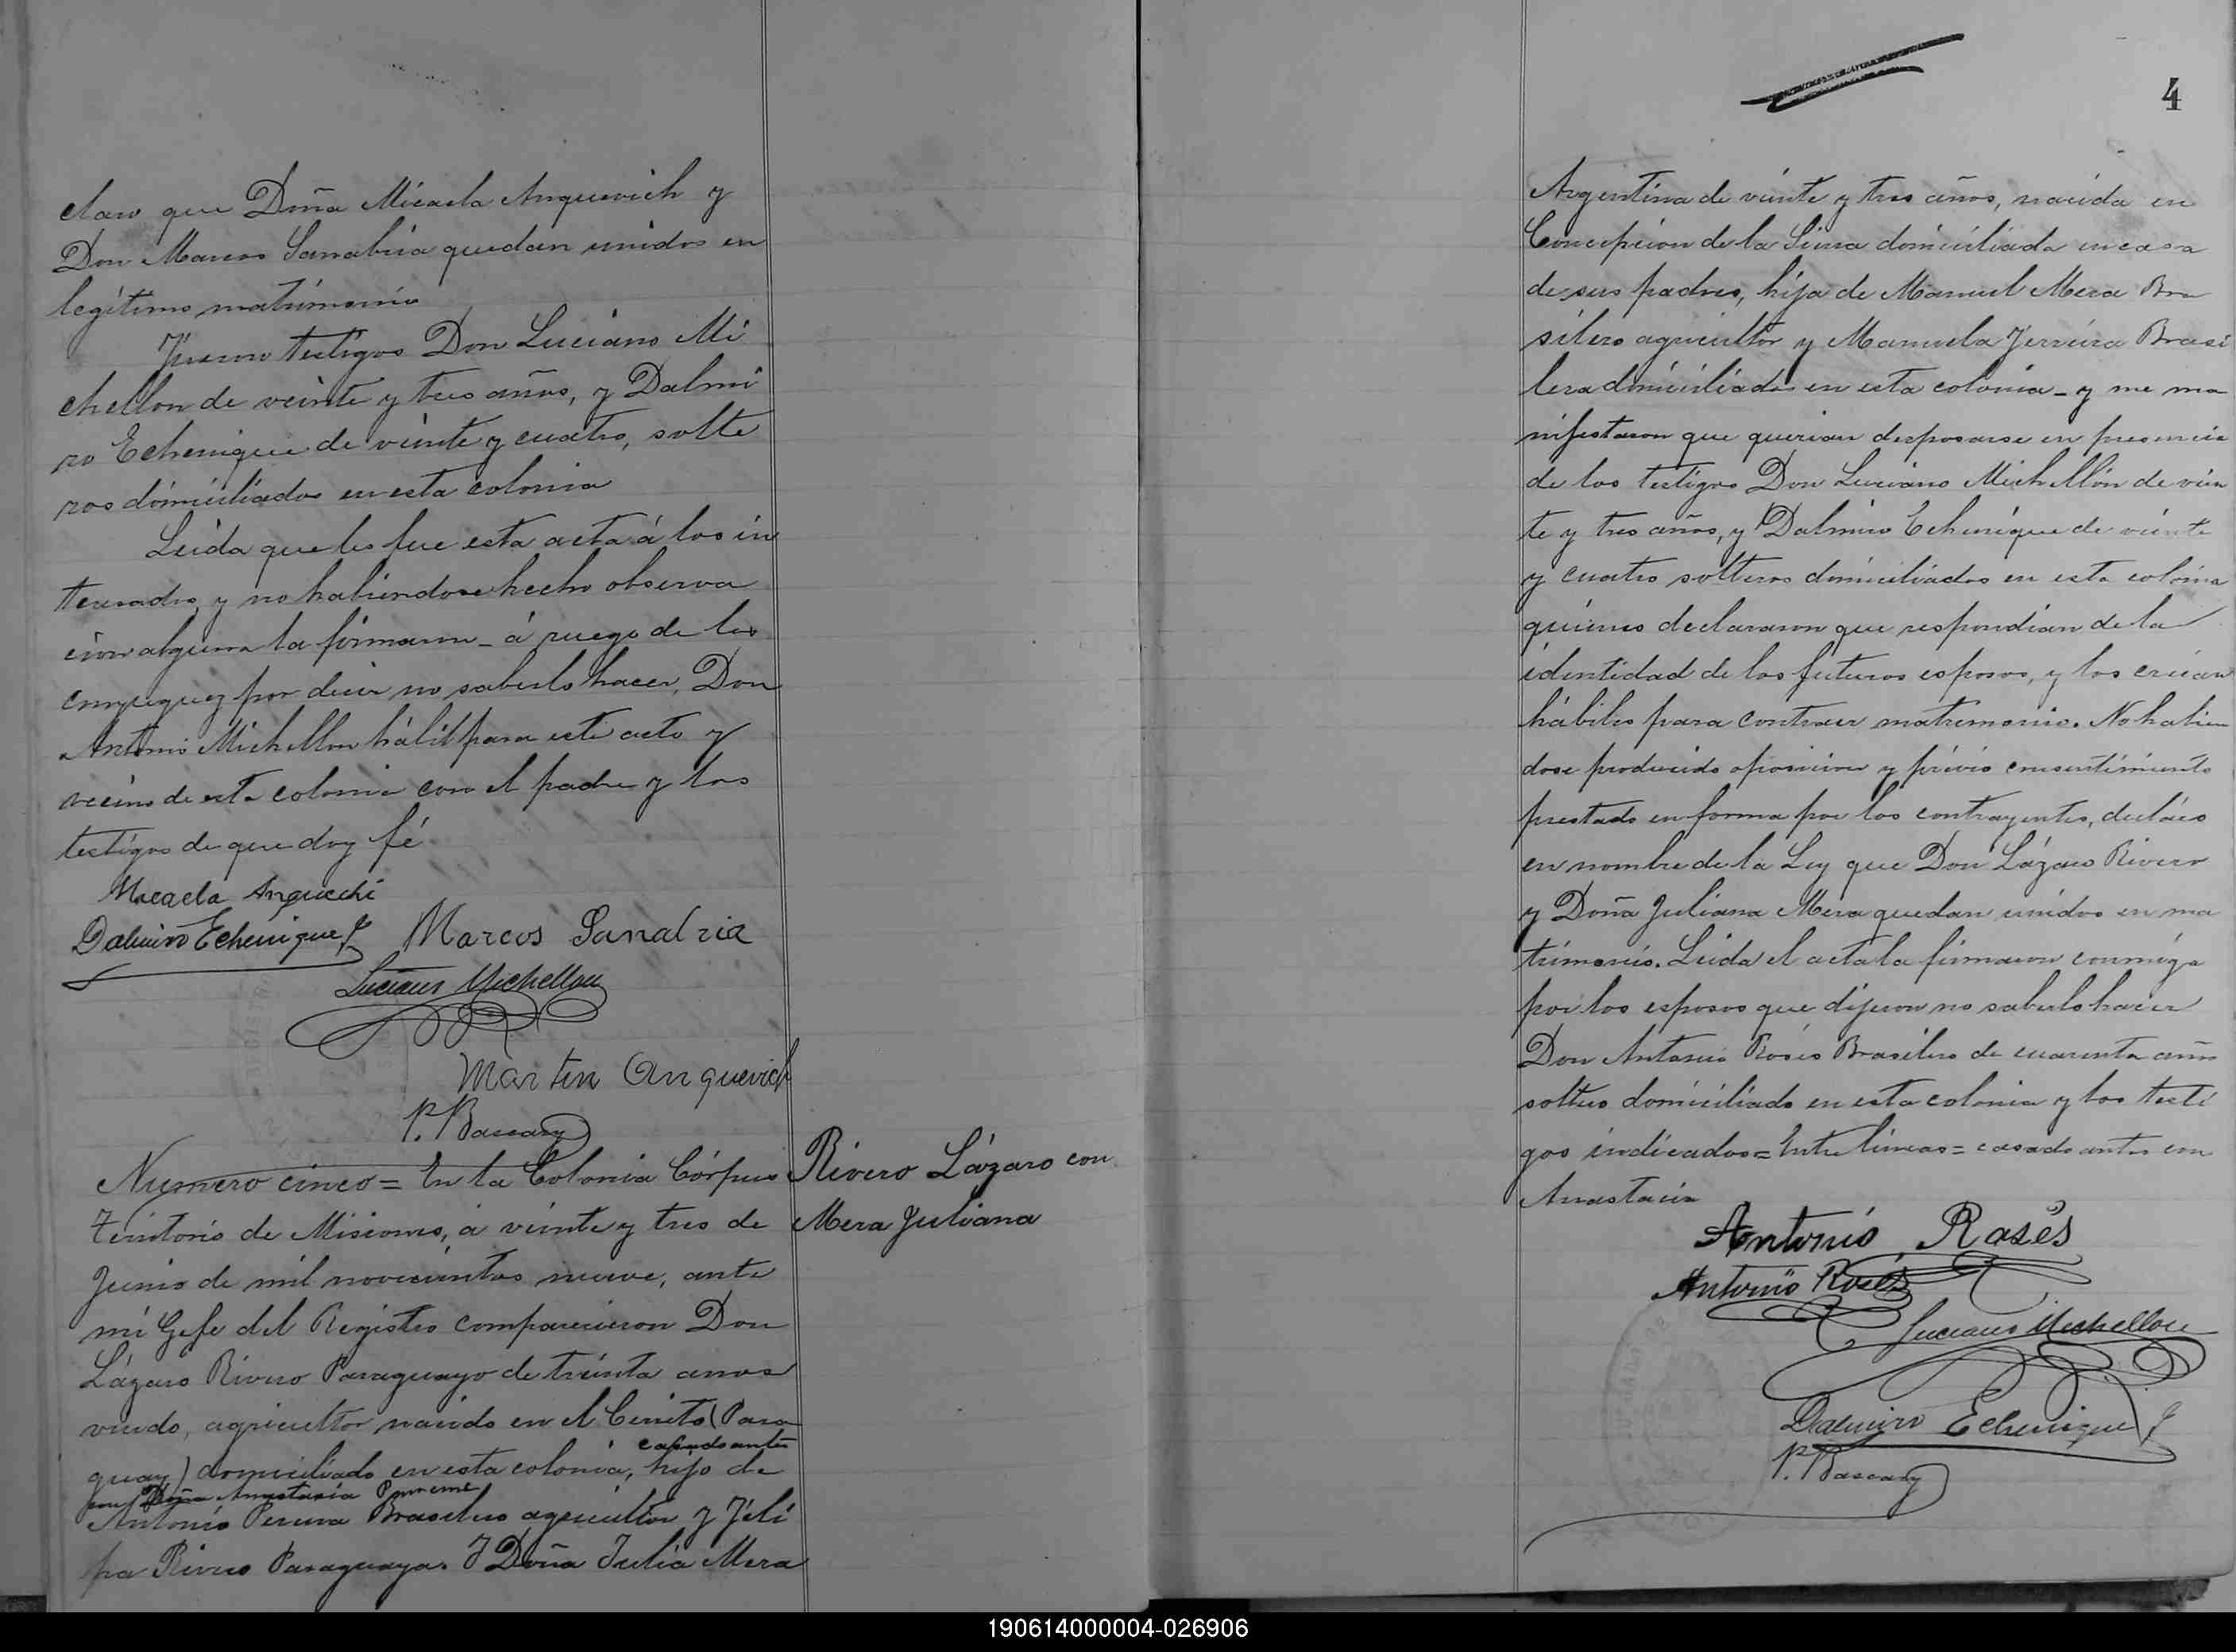 claro que Doña Micaela Anquevich y
Don Marcos Sanabria quedan unidos en
legitimo matrimonio
Fueron testigos Don Luciano Mi
chellon de veinte y tres años, y Dalmi
ro Echenique de veinte y cuatro, solte
ros domiciliados en esta colonia
Leida que les fue esta acta á los in
teresados y no habiendose hecho observa
cion alguna la firmaron _ á ruego de los
conyuguez por decir no saberlo hacer, Don
Antonio Michellon hábil para este acto y
vecino de esta colonia con el padre y los
testigos de que doy fé
Micaela Anquechi
Dalmiro Echenique
Marcos Sanabria
Luciano Michellon
Martin Anquevich
P. Bascary
Numero cinco = En la Colonia Córpus
Territorio de Misiones, á veinte y tres de
Junio de mil novecientos nueve, ante
mi Gefe del Registro comparecieron Don
Lázaro Rivero Paraguayo de treinta anos
viudo, agricultor nacido en el Cerrito (Para
casado antes
guay) domiciliado en esta colonia, hijo de
con Doña Anastacia
Antonio Pereira Brasilero agricultor y Feli
pa Rivero Paraguaya. Y Doña Julia Mera
Rivero Lázaro con
Mera Juliana
4
Argentina de veinte y tres años, nacida en
Concepcion de la Sierra domiciliada en casa
de sus padres, hija de Manuel Mera Bra
silero agricultor y Manuela Ferreira Brasi
lera domiciliados en esta colonia _ y me ma
nifestaron que querian desposarse en presencia
de los testigos Don Luciano Michellon de vein
te y tres años, y Dalmiro Echenique de veinte
y cuatro solteros domiciliados en esta colonia
quienes declararon que respondian de la
identidad de los futuros esposos, y los creian
hábiles para contraer matrimonio. No habien
dose producido oposicion y prévio consentimiento
prestado en forma por los contrayentes, decláro
en nombre de la Ley que Don Lázaro Rivero
y Doña Juliana Mera quedan unidos en ma
trimonio. Leida el acta la firmaron conmigo
por los esposos que dijeron no saberlo hacer
Don Antonio Rosés Brasilero de cuarenta años
soltero domiciliado en esta colonia y los testi
gos indicados = Entre lineas = casado antes con
Anastacia
Antonio Rasés
Antonio Rosés
Luciano Michellon
Dalmiro Echenique
P. Bascary
190614000004-026906